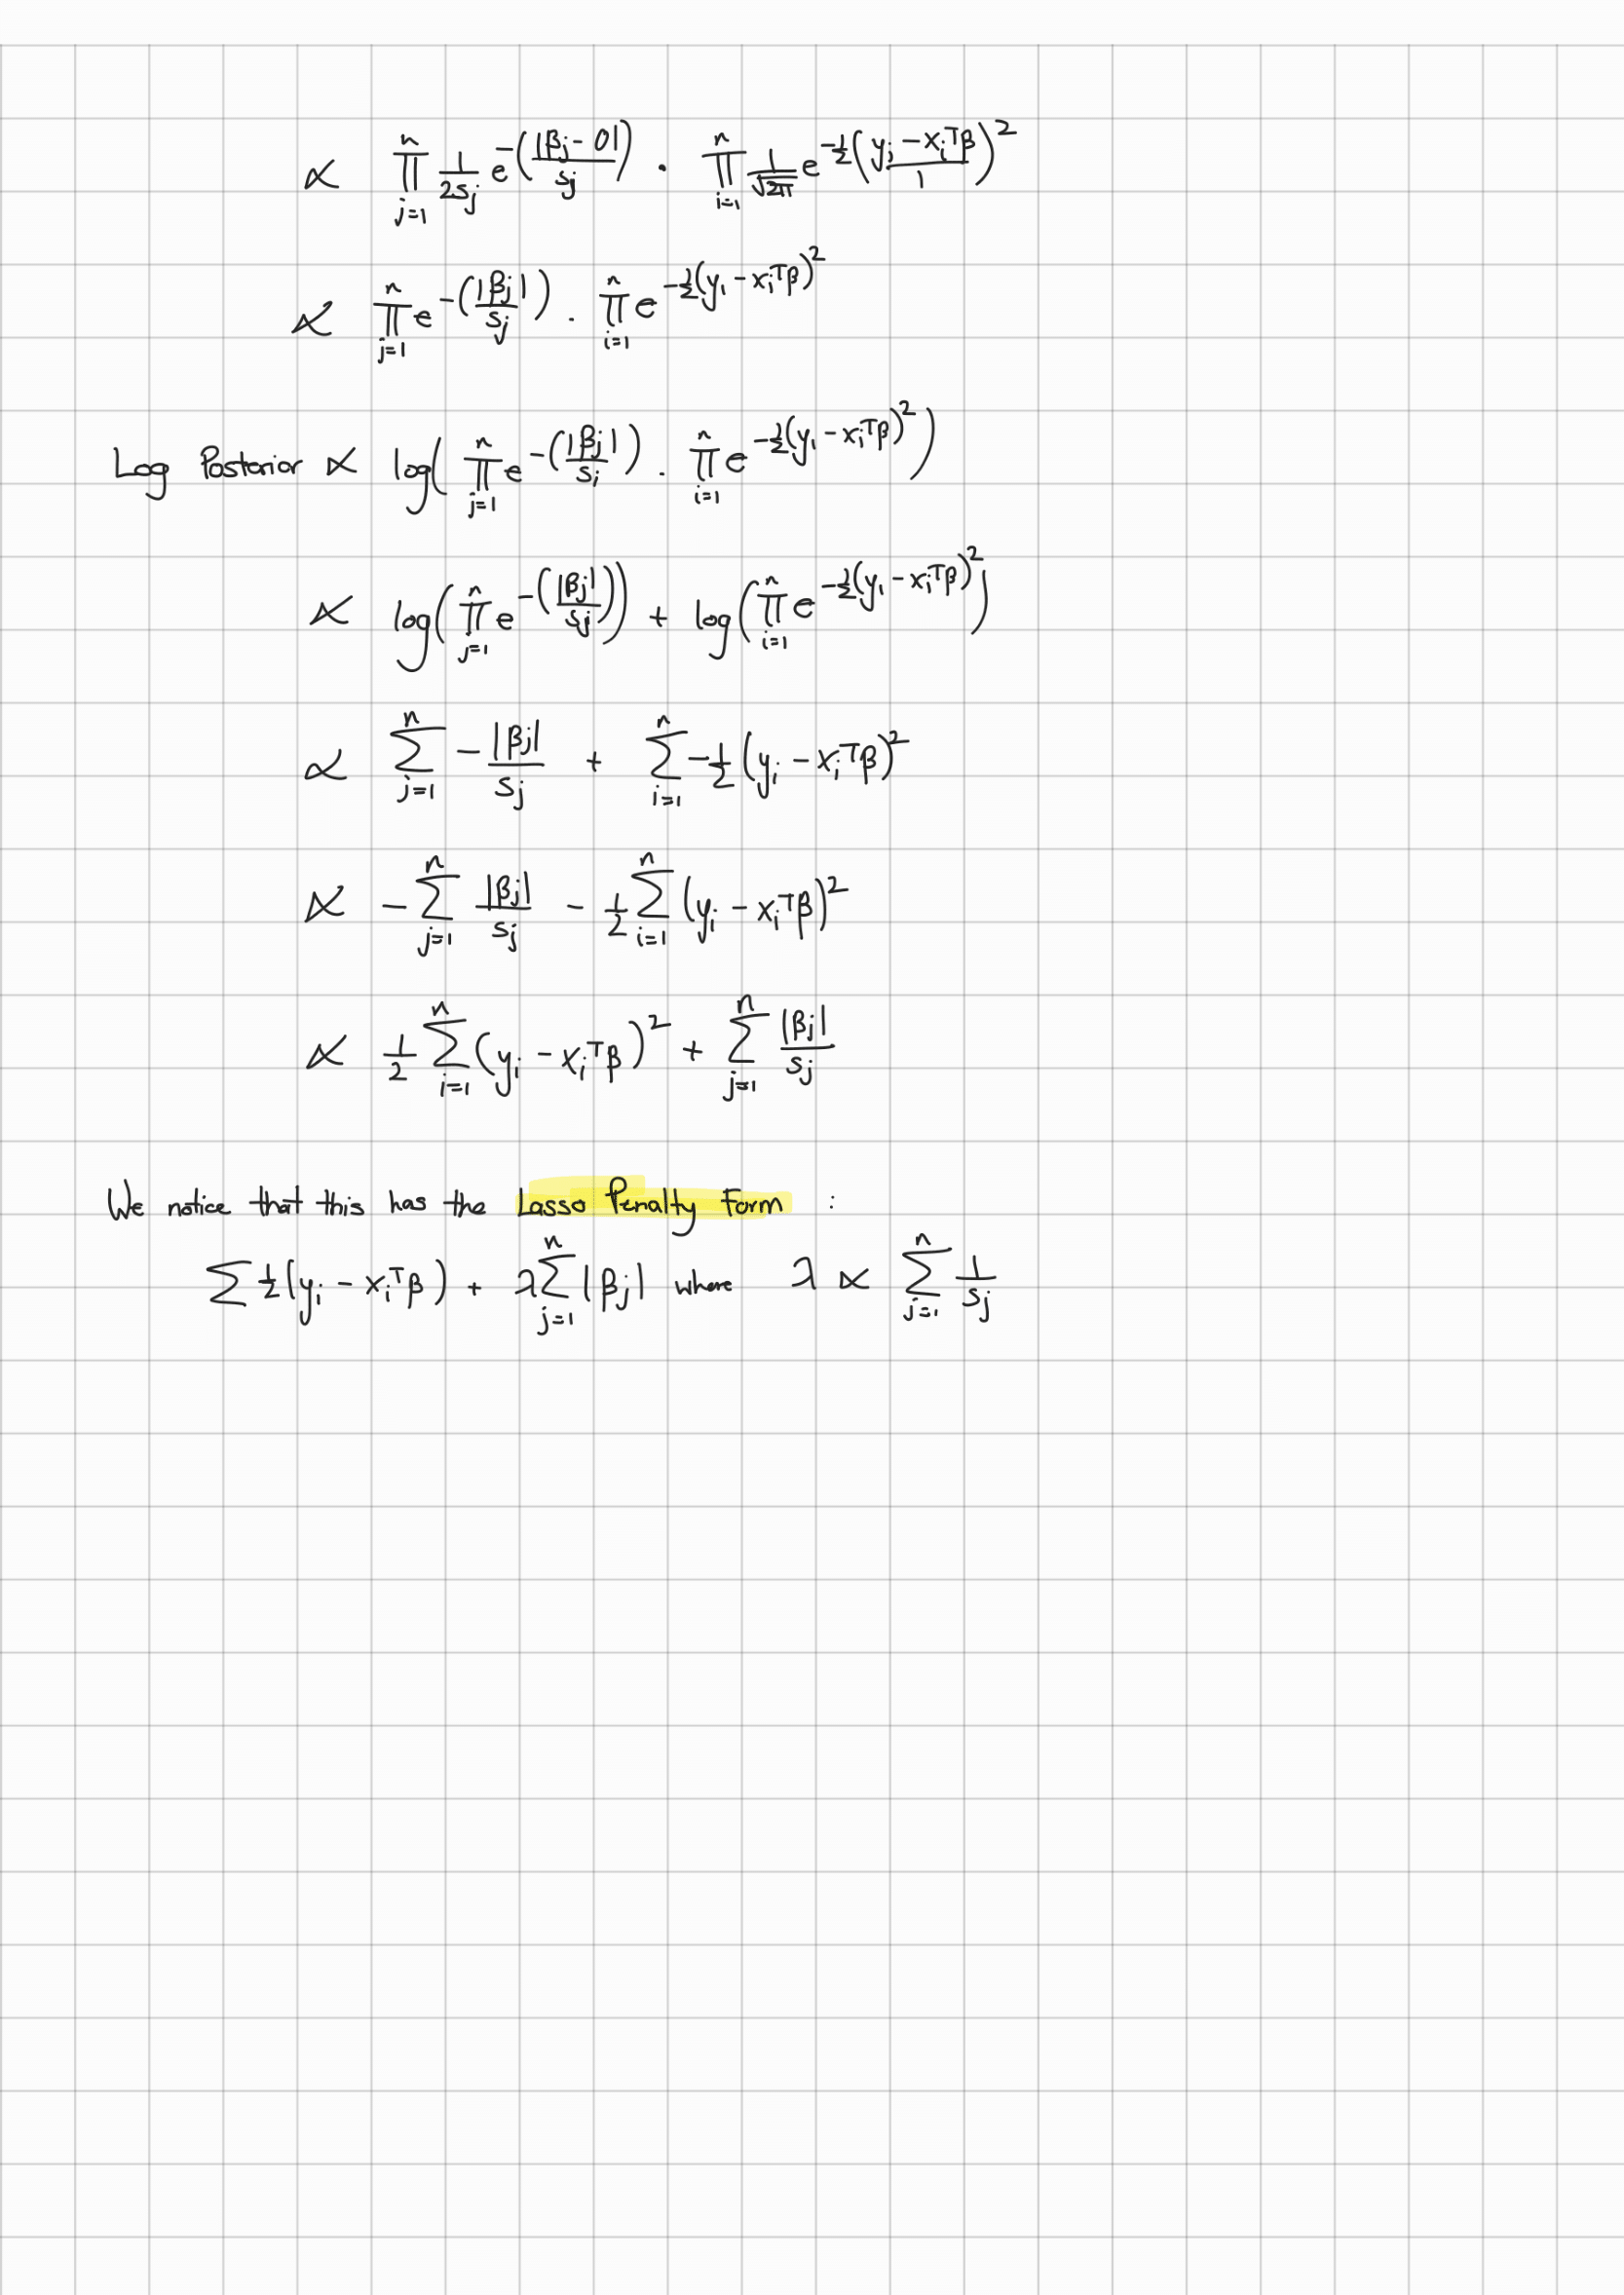 ∝ ∏_{j=1}^{n} 1/(2s_j) e^{-(|β_j - 0|/s_j)} · ∏_{i=1}^{n} 1/√(2π) e^{-1/2((y_i - x_i^Tβ)/1)^2}
∝ ∏_{j=1}^{n} e^{-(|β_j|/s_j)} · ∏_{i=1}^{n} e^{-1/2(y_i - x_i^Tβ)^2}
Log Posterior ∝ log(∏_{j=1}^{n} e^{-(|β_j|/s_i)} · ∏_{i=1}^{n} e^{-1/2(y_i - x_i^Tβ)^2})
∝ log(∏_{j=1}^{n} e^{-(|β_j|/s_j)}) + log(∏_{i=1}^{n} e^{-1/2(y_i - x_i^Tβ)^2})
∝ ∑_{j=1}^{n} -|β_j|/s_j + ∑_{i=1}^{n} -1/2 (y_i - x_i^Tβ)^2
∝ -∑_{j=1}^{n} |β_j|/s_j - 1/2 ∑_{i=1}^{n} (y_i - x_i^Tβ)^2
∝ 1/2 ∑_{i=1}^{n} (y_i - x_i^Tβ)^2 + ∑_{j=1}^{n} |β_j|/s_j
We notice that this has the Lasso Penalty Form :
∑ 1/2(y_i - x_i^Tβ) + λ∑_{j=1}^{n} |β_j| where λ ∝ ∑_{j=1}^{n} 1/s_j